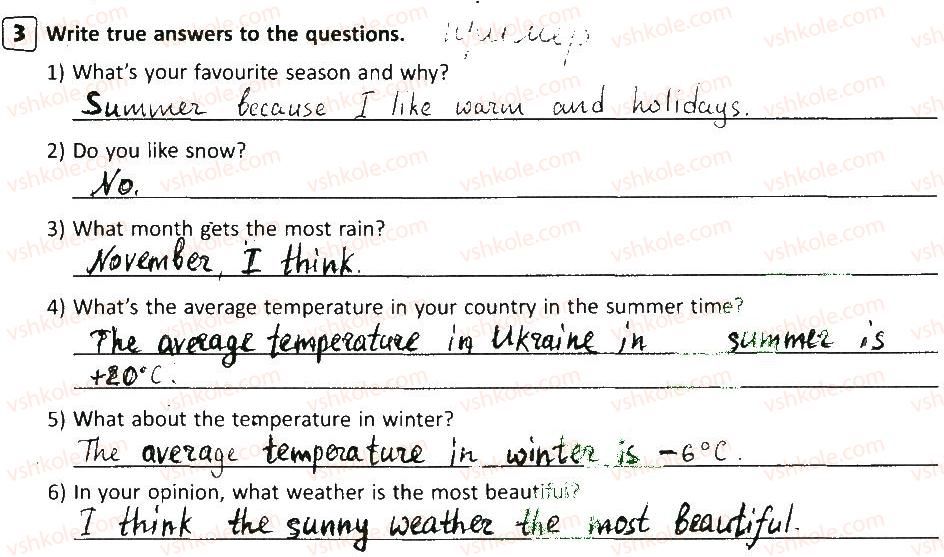 3 Write true answers to the questions.
1) What's your favourite season and why?
Summer because I like warm and holidays.
2) Do you like snow?
No.
3) What month gets the most rain?
November, I think.
4) What's the average temperature in your country in the summer time?
The average temperature in Ukraine in summer is
+20°C.
5) What about the temperature in winter?
The average temperature in winter is -6°C.
6) In your opinion, what weather is the most beautiful?
I think the sunny weather the most beautiful.
vshkole.com